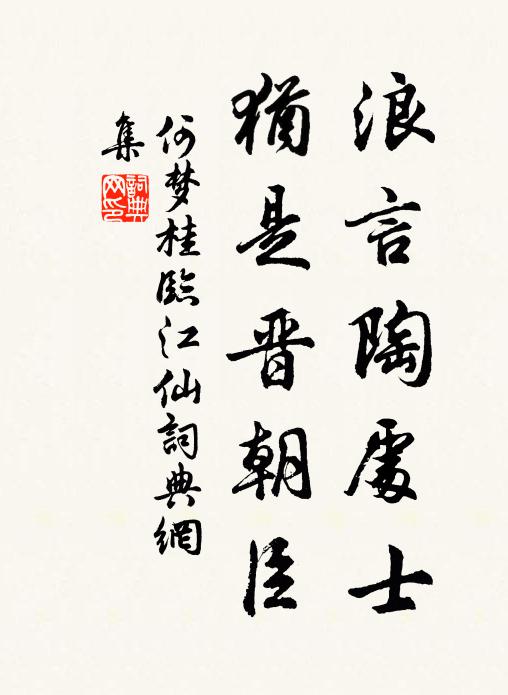 浪言陶處士
猶是晋朝臣
何梦桂臨江仙詞典網
集
詞典網印